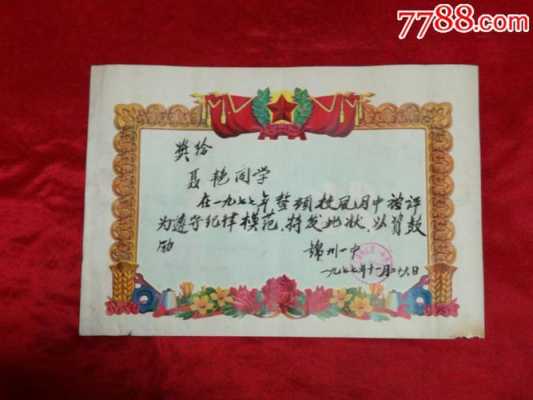 7788.com
奖给
聂艳同学
在一九七七年整顿校风月中被评
为遵守纪律模范,特发此状,以资鼓
励
锦州一中
一九七七年十一月二十六日